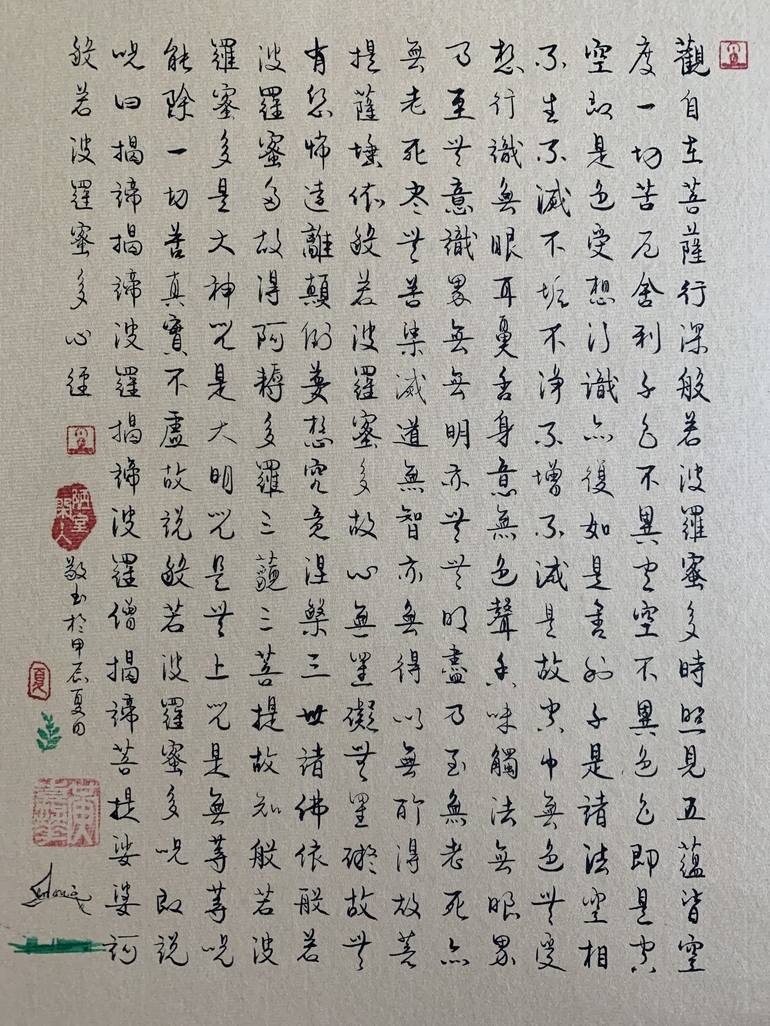 觀自在菩薩行深般若波羅蜜多時照見五蘊皆空
度一切苦厄舍利子色不異空空不異色色即是空
空即是色受想行識亦復如是舍利子是諸法空相
不生不滅不垢不淨不增不減是故空中無色無受
想行識無眼耳鼻舌身意無色聲香味觸法無眼界
乃至無意識界無無明亦無無明盡乃至無老死亦
無老死盡無苦集滅道無智亦無得以無所得故菩
提薩埵依般若波羅蜜多故心無罣礙無罣礙故無
有恐怖遠離顛倒夢想究竟涅槃三世諸佛依般若
波羅蜜多故得阿耨多羅三藐三菩提故知般若波
羅蜜多是大神咒是大明咒是無上咒是無等等呪
能除一切苦真實不虛故說般若波羅蜜多呪即說
呪曰揭諦揭諦波羅揭諦波羅僧揭諦菩提娑婆訶
般若波羅蜜多心經
陋室閑人
敬書於甲辰夏日
夏